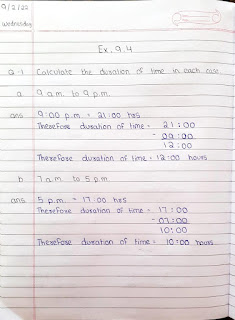 9/2/22
Wednesday
Ex. 9.4
Q-1 Calculate the duration of time in each case.
a 9 a.m. to 9 p.m.
ans 9:00 p.m = 21:00 hrs
Therefore duration of time = 21:00
- 09:00
12:00
Therefore duration of time = 12:00 hours
b 7 a.m. to 5 p.m.
ans 5 p.m. = 17:00 hrs
Therefore duration of time = 17:00
- 07:00
10:00
Therefore duration of time = 10:00 hours